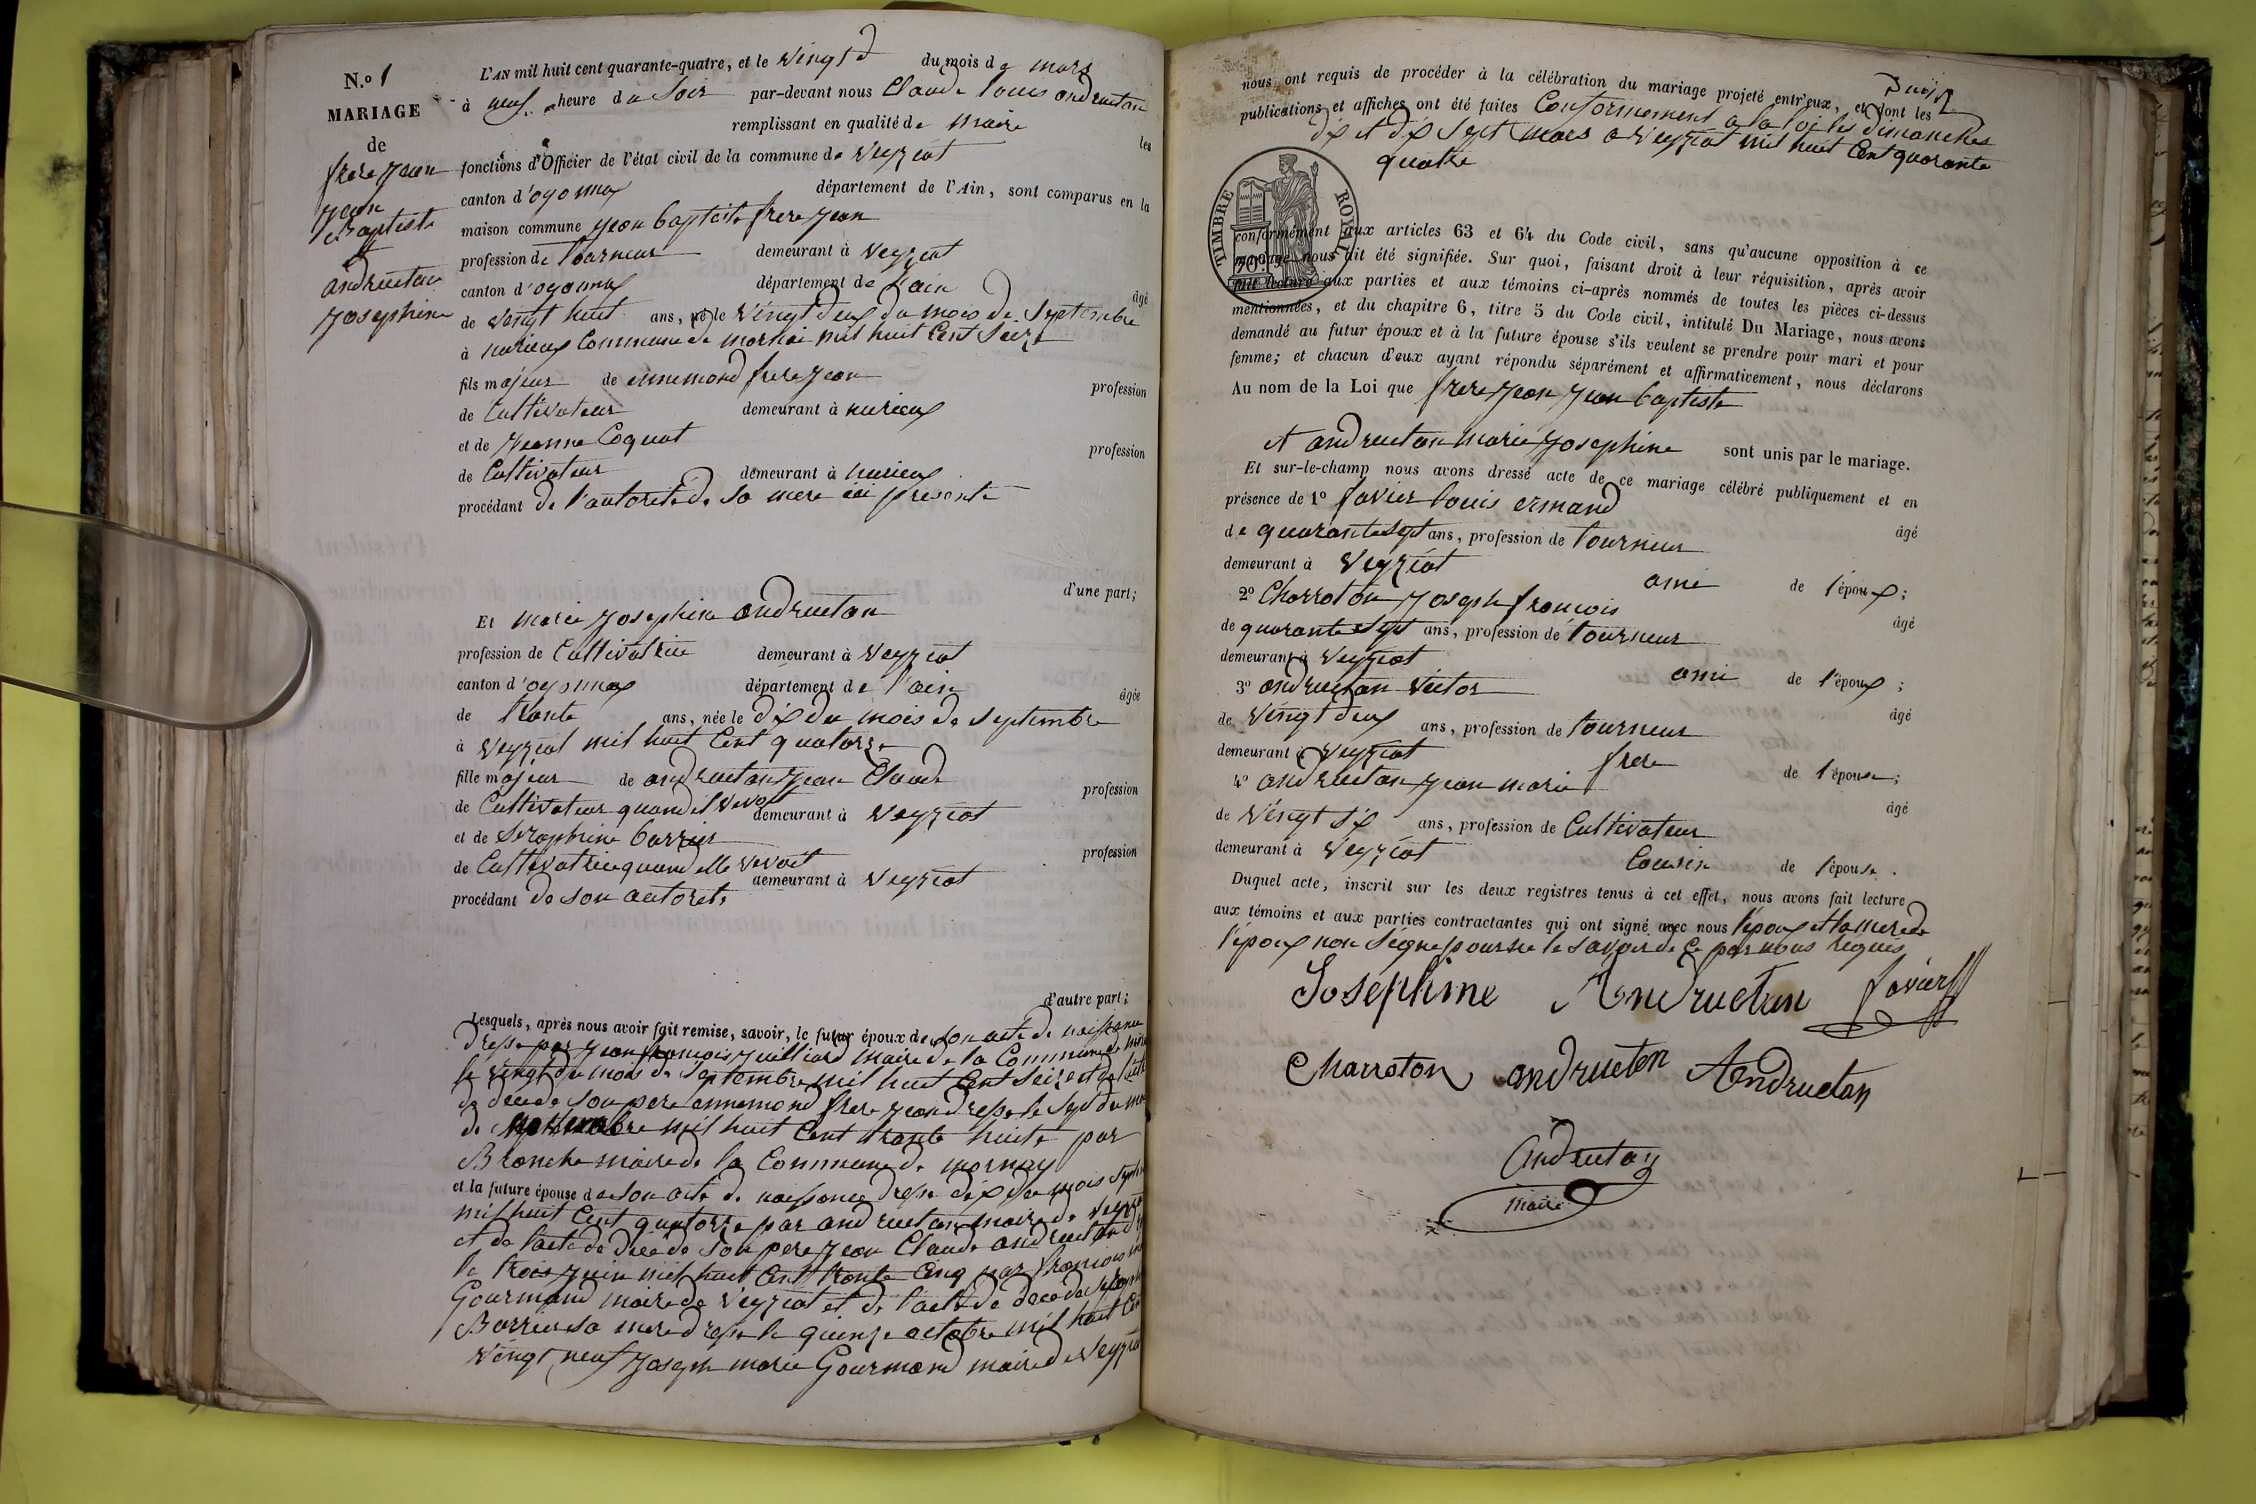 N.o 1
MARIAGE
de
frere jean
jean
Baptiste
et
andruetan
josephine
L'AN mil huit cent quarante-quatre, et le vingt du mois de mars
à neuf heure du soir par-devant nous Claude louis andruetan
remplissant en qualité de maire les
fonctions d'Officier de l'état civil de la commune de Veyziat
canton d'oyonnax département de l'Ain, sont comparus en la
maison commune jean baptiste frere jean
profession de tourneur demeurant à veyziat
canton d'oyonnax département de l'ain âgé
de vingt huit ans, né le vingt deux du mois de septembre
à nurieux Commune de mornai mil huit Cent Seize
fils majeur de ennemond frere jean profession
de Cultivateur demeurant à nurieux
et de jeanne Coquat profession
de Cultivateur demeurant à nurieux
procédant de l'autorité de sa mere ici presente
d'une part;
Et marie josephine andruetan
profession de Cultivatrice demeurant à veyziat
canton d'oyonnax département de l'ain âgée
de trante ans, née le dix du mois de septembre
à veyziat mil huit Cent quatorze
fille majeur de andruetan jean Claude profession
de Cultivateur quand il vivoit demeurant à veyziat
et de Seraphine barrier profession
de Cultivatrice quand elle vivoit demeurant à veyziat
procédant de son autorité
d'autre part;
Lesquels, après nous avoir fait remise, savoir, le futur époux de son acte de naissance
dressé par jean françois juilliard maire de la Commune de
le vingt du mois de Septembre mil huit Cent Seize et de l'acte
de décé de son pere ennemond frere jean dressé le sept du mois
de mil huit Cent trante huite par
Blanche maire de la Commune de mornay
et la future épouse de son acte de naissance dressé dix du mois
mil huit Cent quatorze par andruetan maire de veyziat
et de l'acte de décé de son pere jean Claude andruetan
le trois juin mil huit Cent trante Cinq par françois
Gourmand maire de veyziat et de l'acte de décé de
Barrier sa mere dressé le quinze octobre mil huit Cent
vingt neuf joseph marie Gourmand maire de veyziat
nous ont requis de procéder à la célébration du mariage projeté entr'eux, et dont les
publications et affiches ont été faites Conformement a la loi les dimanches
dix et dix sept mars a veyziat mil huit Cent quarante
quatre
TIMBRE ROYAL
conformément aux articles 63 et 64 du Code civil, sans qu'aucune opposition à ce
mariage nous ait été signifiée. Sur quoi, faisant droit à leur réquisition, après avoir
fait lecture aux parties et aux témoins ci-après nommés de toutes les pièces ci-dessus
mentionnées, et du chapitre 6, titre 5 du Code civil, intitulé Du Mariage, nous avons
demandé au futur époux et à la future épouse s'ils veulent se prendre pour mari et pour
femme; et chacun d'eux ayant répondu séparément et affirmativement, nous déclarons
Au nom de la Loi que frere jean jean baptiste
et andruetan marie josephine sont unis par le mariage.
Et sur-le-champ nous avons dressé acte de ce mariage célébré publiquement et en
présence de 1o favier louis ermand âgé
de quarante sept ans, profession de tourneur
demeurant à veyziat ami de l'époux;
2o Charroton joseph françois âgé
de quarante sept ans, profession de tourneur
demeurant à veyziat ami de l'époux;
3o andruetan victor âgé
de vingt deux ans, profession de tourneur
demeurant à veyziat frere de l'épouse;
4o andruetan jean marie âgé
de vingt six ans, profession de Cultivateur
demeurant à veyziat Cousin de l'épouse.
Duquel acte, inscrit sur les deux registres tenus à cet effet, nous avons fait lecture
aux témoins et aux parties contractantes qui ont signé avec nous l'époux et la mere de
l'époux non signé pour ne le savoir de Ce par nous requis
Josephine Andruetan favier
Charroton andrueton Andruetan
Andruetan
maire